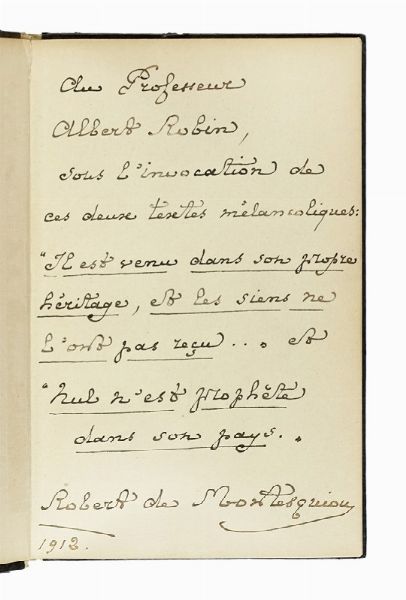 Au Professeur
Albert Robin,
sous l'invocation de
ces deux textes mélancoliques:
"Il est venu dans son propre
héritage, et les siens ne
l'ont pas reçu... et
"Nul n'est prophète
dans son pays..
Robert de Montesquiou
1912.